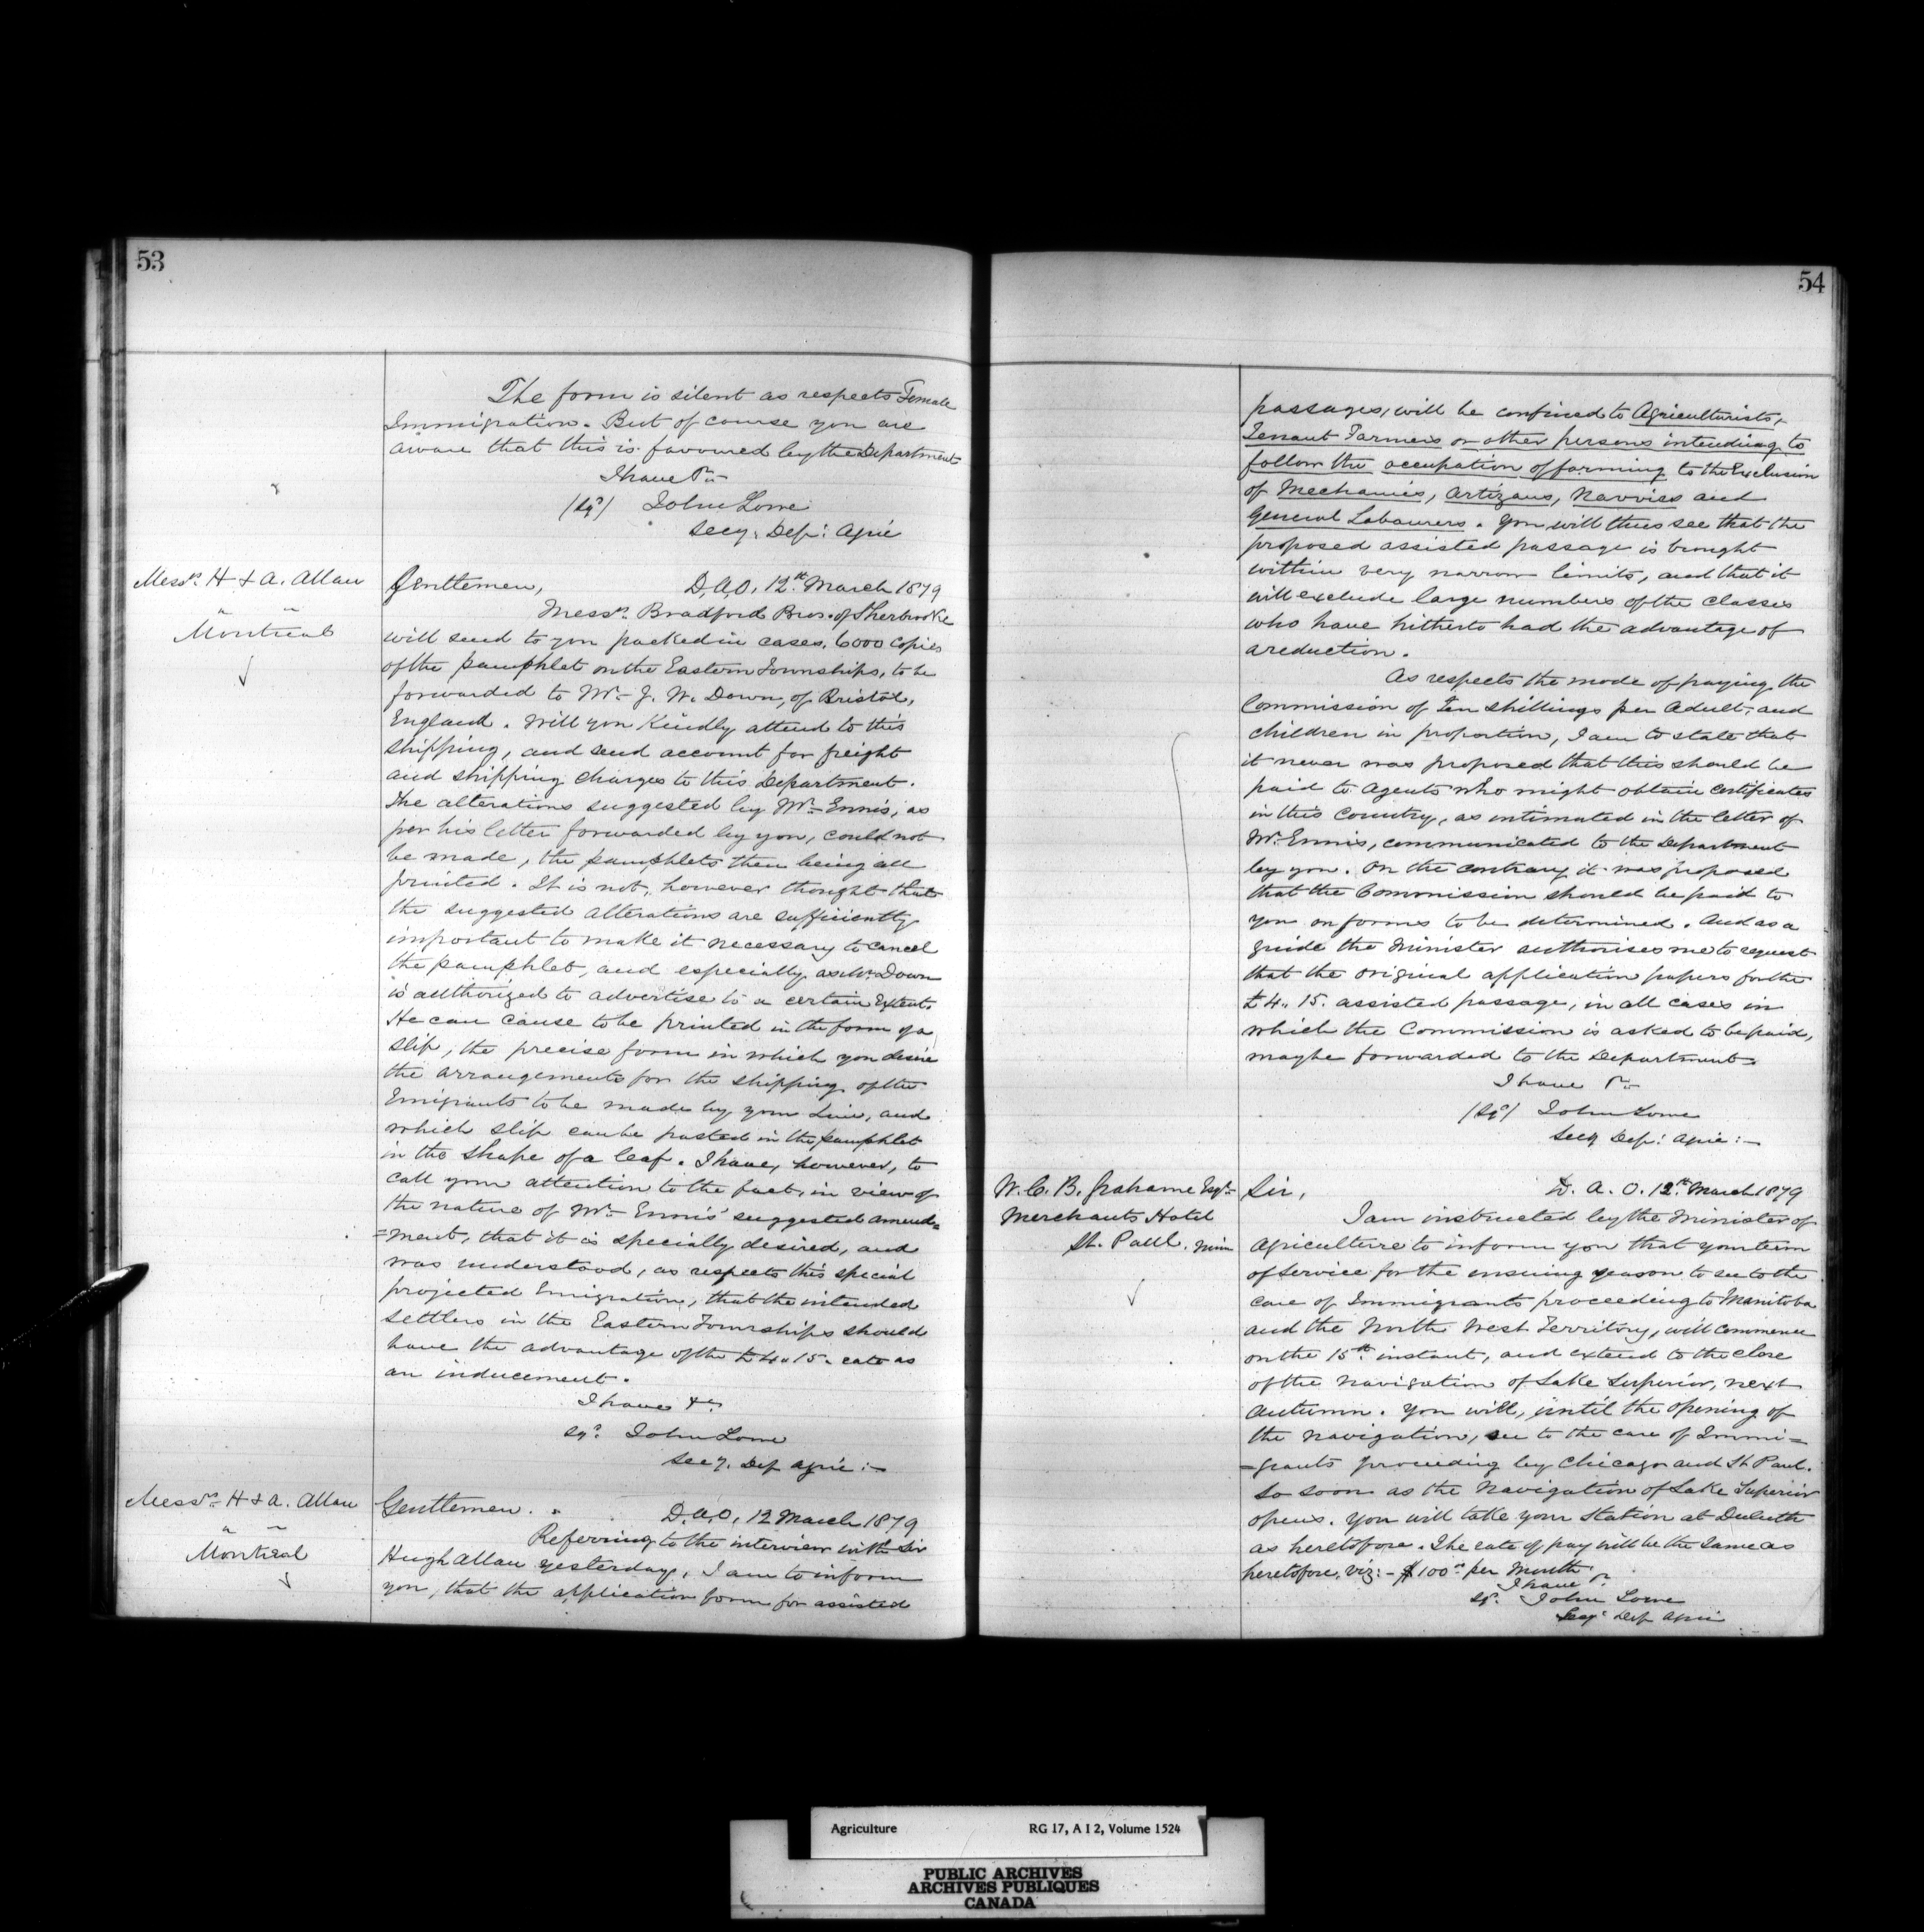 53
The form is silent as respects Female
Immigration. But of course you are
aware that this is favoured by the Department
I have &c
(sgd) John Lowe
Secy. Dept: Agric
Messrs. H & A. Allan
" "
Montreal
Gentlemen, D.A.O, 12th March 1879
Messrs. Bradford Bros. of Sherbrooke
will send to you packed in cases, 6000 copies
of the pamphlet on the Eastern Townships, to be
forwarded to Mr. J. W. Down, of Bristol,
England. Will you kindly attend to this
shipping, and send account for freight
and shipping charges to this Department.
The alterations suggested by Mr. Ennis, as
per his letter forwarded by you, could not
be made, the pamphlets then being all
printed. It is not, however thought that
the suggested alterations are sufficiently
important to make it necessary to cancel
the pamphlet, and especially as Mr. Down
is authorized to advertise to a certain extent.
He can cause to be printed in the form of a
slip, the precise form in which you desire
the arrangements for the shipping of the
Emigrants to be made by your Line, and
which slip can be pasted in the pamphlet
in the shape of a leaf. I have, however, to
call your attention to the fact, in view of
the nature of Mr. Ennis' suggested amend=
=ment, that it is specially desired, and
was understood, as respects this special
projected Emigration, that the intended
settlers in the Eastern Townships should
have the advantage of the £4 " 15. rate as
an inducement.
I have &c.
sgd. John Lowe
Secy. Dep Agric :-
Messrs. H & A. Allan
" "
Montreal
Gentlemen. D.A.O, 12 March 1879
Referring to the interview with Sir
Hugh Allan yesterday, I am to inform
you, that the application form for assisted
54
passages, will be confined to Agriculturists,
Tenant Farmers or other persons intending to
follow the occupation of farming to the Exclusion
of Mechanics, Artizans, Navvies and
General Labourers. You will thus see that the
proposed assisted passage is brought
within very narrow limits, and that it
will exclude large numbers of the classes
who have hitherto had the advantage of
a reduction.
As respects the mode of paying the
Commission of Ten shillings per Adult, and
children in proportion, I am to state that
it never was proposed that this should be
paid to Agents who might obtain certificates
in this Country, as intimated in the letter of
Mr. Ennis, communicated to the Department
by you. On the contrary it was proposed
that the Commission should be paid to
you on forms to be determined. And as a
guide the Minister authorises me to request
that the original application papers for the
£4 " 15. assisted passage, in all cases in
which the Commission is asked to be paid,
may be forwarded to the Department.
I have &c
(sgd) John Lowe
Secy Dep: Agric :-
W. C. B. Grahame Esqr.
Merchants Hotel
St. Paul. Minn
Sir, D. A. O. 12th March 1879
I am instructed by the Minister of
Agriculture to inform you that your term
of Service for the ensuing season to see to the
care of Immigrants proceeding to Manitoba
and the North West Territory, will commence
on the 15th instant, and extend to the close
of the navigation of Lake Superior, next
Autumn. You will, until the opening of
the navigation, see to the care of Immi=
=grants proceeding by Chicago and St Paul.
So soon as the Navigation of Lake Superior
opens. You will take your Station at Duluth
as heretofore. The rate of pay will be the same as
heretofore, viz: - $100 per Month.
I have &c
sgd. John Lowe
Secy. Dep Agric
Agriculture RG 17, A I 2, Volume 1524
PUBLIC ARCHIVES
ARCHIVES PUBLIQUES
CANADA